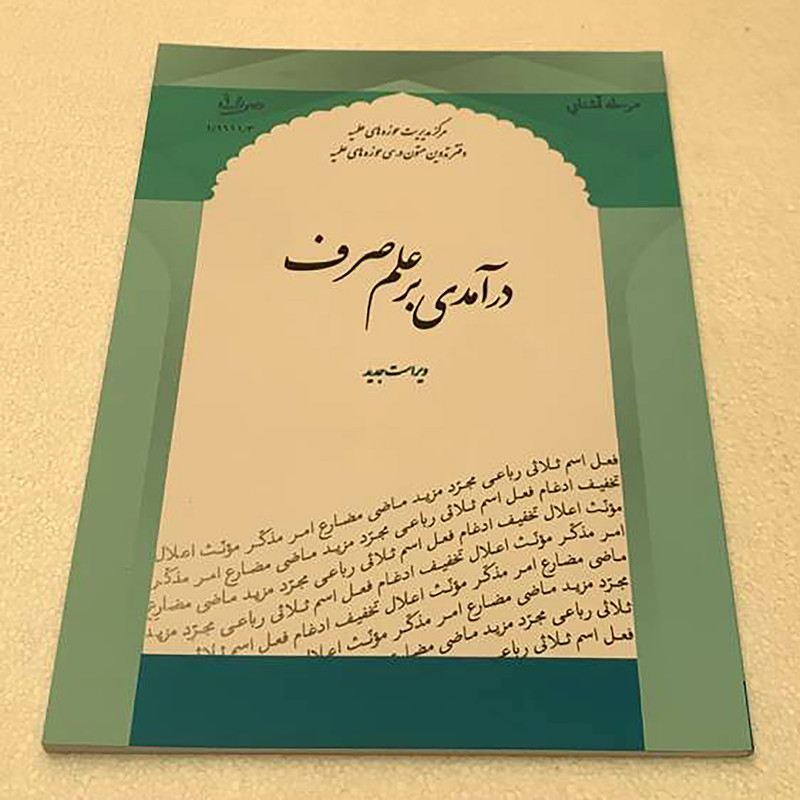 مرحله آشنایی
مرکز مدیریت حوزه‌های علمیه
دفتر تدوین متون درسی حوزه‌های علمیه
درآمدی بر علم صرف
ویراست جدید
فعل اسم ثلاثی رباعی مجرّد مزید ماضی مضارع امر مذکّر مؤنّث اعلال
تخفیف ادغام فعل اسم ثلاثی رباعی مجرّد مزید ماضی مضارع امر مذکّر
مؤنّث اعلال تخفیف ادغام فعل اسم ثلاثی رباعی مجرّد مزید ماضی مضارع
امر مذکّر مؤنّث اعلال تخفیف ادغام فعل اسم ثلاثی رباعی مجرّد مزید
ماضی مضارع امر مذکّر مؤنّث اعلال تخفیف ادغام فعل اسم ثلاثی
مجرّد مزید ماضی مضارع امر مذکّر مؤنّث اعلال
ثلاثی رباعی مجرّد مزید ماضی مضارع
فعل اسم ثلاثی رباعی